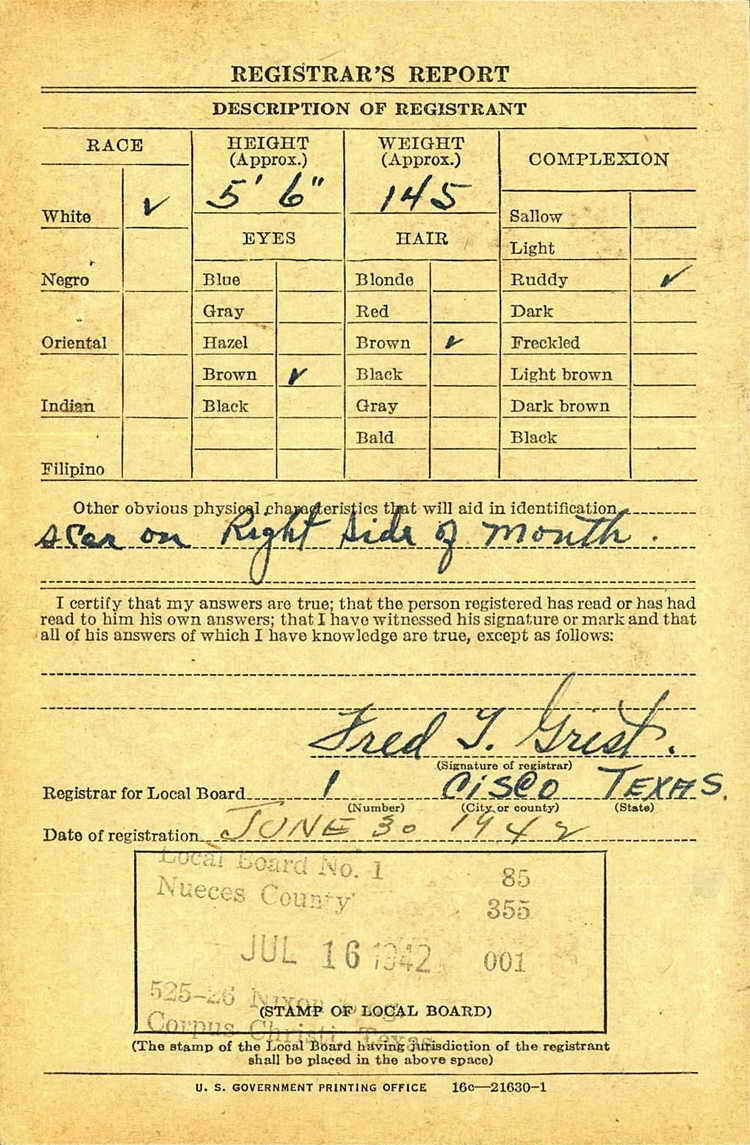 REGISTRAR'S REPORT
DESCRIPTION OF REGISTRANT
RACE
HEIGHT (Approx.)
WEIGHT (Approx.)
COMPLEXION
5' 6"
145
White ✓
Sallow
EYES
HAIR
Light
Negro
Blue
Blonde
Ruddy ✓
Gray
Red
Dark
Oriental
Hazel
Brown ✓
Freckled
Brown ✓
Black
Light brown
Indian
Black
Gray
Dark brown
Bald
Black
Filipino
Other obvious physical characteristics that will aid in identification
scar on Right side of mouth.
I certify that my answers are true; that the person registered has read or has had
read to him his own answers; that I have witnessed his signature or mark and that
all of his answers of which I have knowledge are true, except as follows:
Fred T. Grist.
(Signature of registrar)
Registrar for Local Board 1 CISCO TEXAS.
(Number) (City or county) (State)
Date of registration JUNE 30 1942
Local Board No. 1 85
Nueces County 355
JUL 16 1942 001
525-26 Nixon
(STAMP OF LOCAL BOARD)
Corpus Christi, Texas
(The stamp of the Local Board having jurisdiction of the registrant
shall be placed in the above space)
U. S. GOVERNMENT PRINTING OFFICE 16c—21630-1